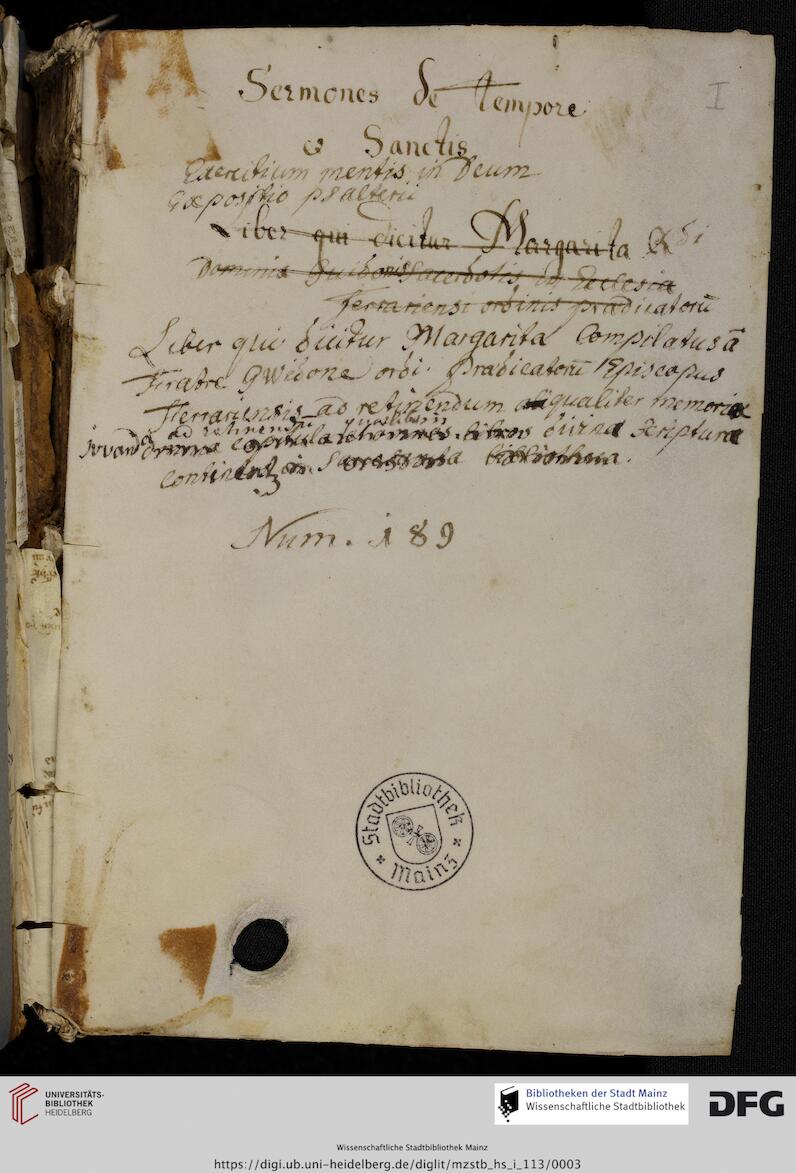 I
Sermones de Tempore
& Sanctis
Exercitium mentis in Deum
Expositio psalterii
Liber qui dicitur Margarita
Domini Guidonis Sacerdotis in Ecclesia
Ferrariensi ordinis prædicatorū
Liber qui dicitur Margarita Compilatus à
Fratre Gwidone ordi. Prædicatorū Episcopus
Ferrariensis ad retinendum aliqualiter memoriæ
ad retinendū
capitula divinæ scripturæ
continent in bibliotheca.
Num. 189
Stadtbibliothek
Mainz
UNIVERSITÄTS-
BIBLIOTHEK
HEIDELBERG
Bibliotheken der Stadt Mainz
Wissenschaftliche Stadtbibliothek
DFG
Wissenschaftliche Stadtbibliothek Mainz
https://digi.ub.uni-heidelberg.de/diglit/mzstb_hs_i_113/0003